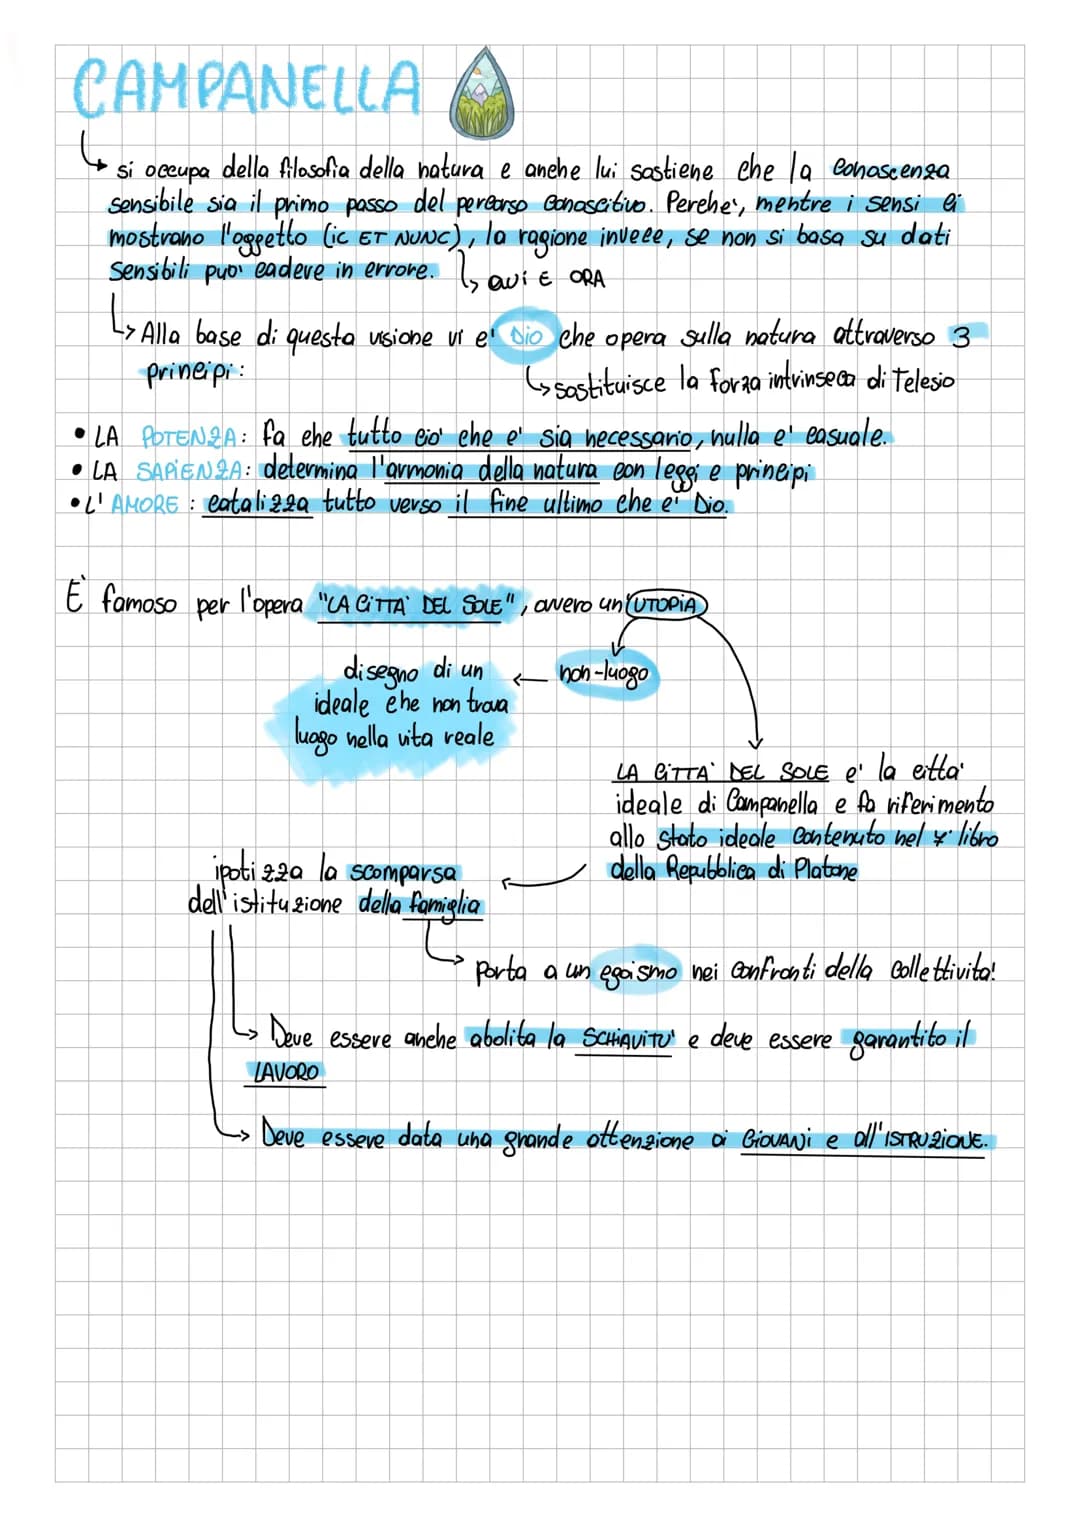 CAMPANELLA
si occupa della filosofia della natura e anche lui sostiene che la conoscenza
sensibile sia il primo passo del percorso conoscitivo. Perche', mentre i sensi ci
mostrano l'oggetto (ic ET NUNC), la ragione invece, se non si basa su dati
sensibili puo' cadere in errore.
QUI E ORA
Alla base di questa visione vi e' Dio che opera sulla natura attraverso 3
principi:
sostituisce la forza intrinseca di Telesio
• LA POTENZA: fa che tutto cio' che e' sia necessario, nulla e' casuale.
• LA SAPIENZA: determina l'armonia della natura con leggi e principi
• L'AMORE: catalizza tutto verso il fine ultimo che e' Dio.
È famoso per l'opera "LA CITTA' DEL SOLE", ovvero un'UTOPIA
non-luogo
disegno di un
ideale che non trova
luogo nella vita reale
LA CITTA' DEL SOLE e' la citta'
ideale di Campanella e fa riferimento
allo stato ideale contenuto nel 7° libro
della Repubblica di Platone
ipotizza la scomparsa
dell'istituzione della famiglia
porta a un egoismo nei confronti della collettivita!
Deve essere anche abolita la SCHIAVITU' e deve essere garantito il
LAVORO
Deve essere data una grande attenzione ai GIOVANI e all'ISTRUZIONE.